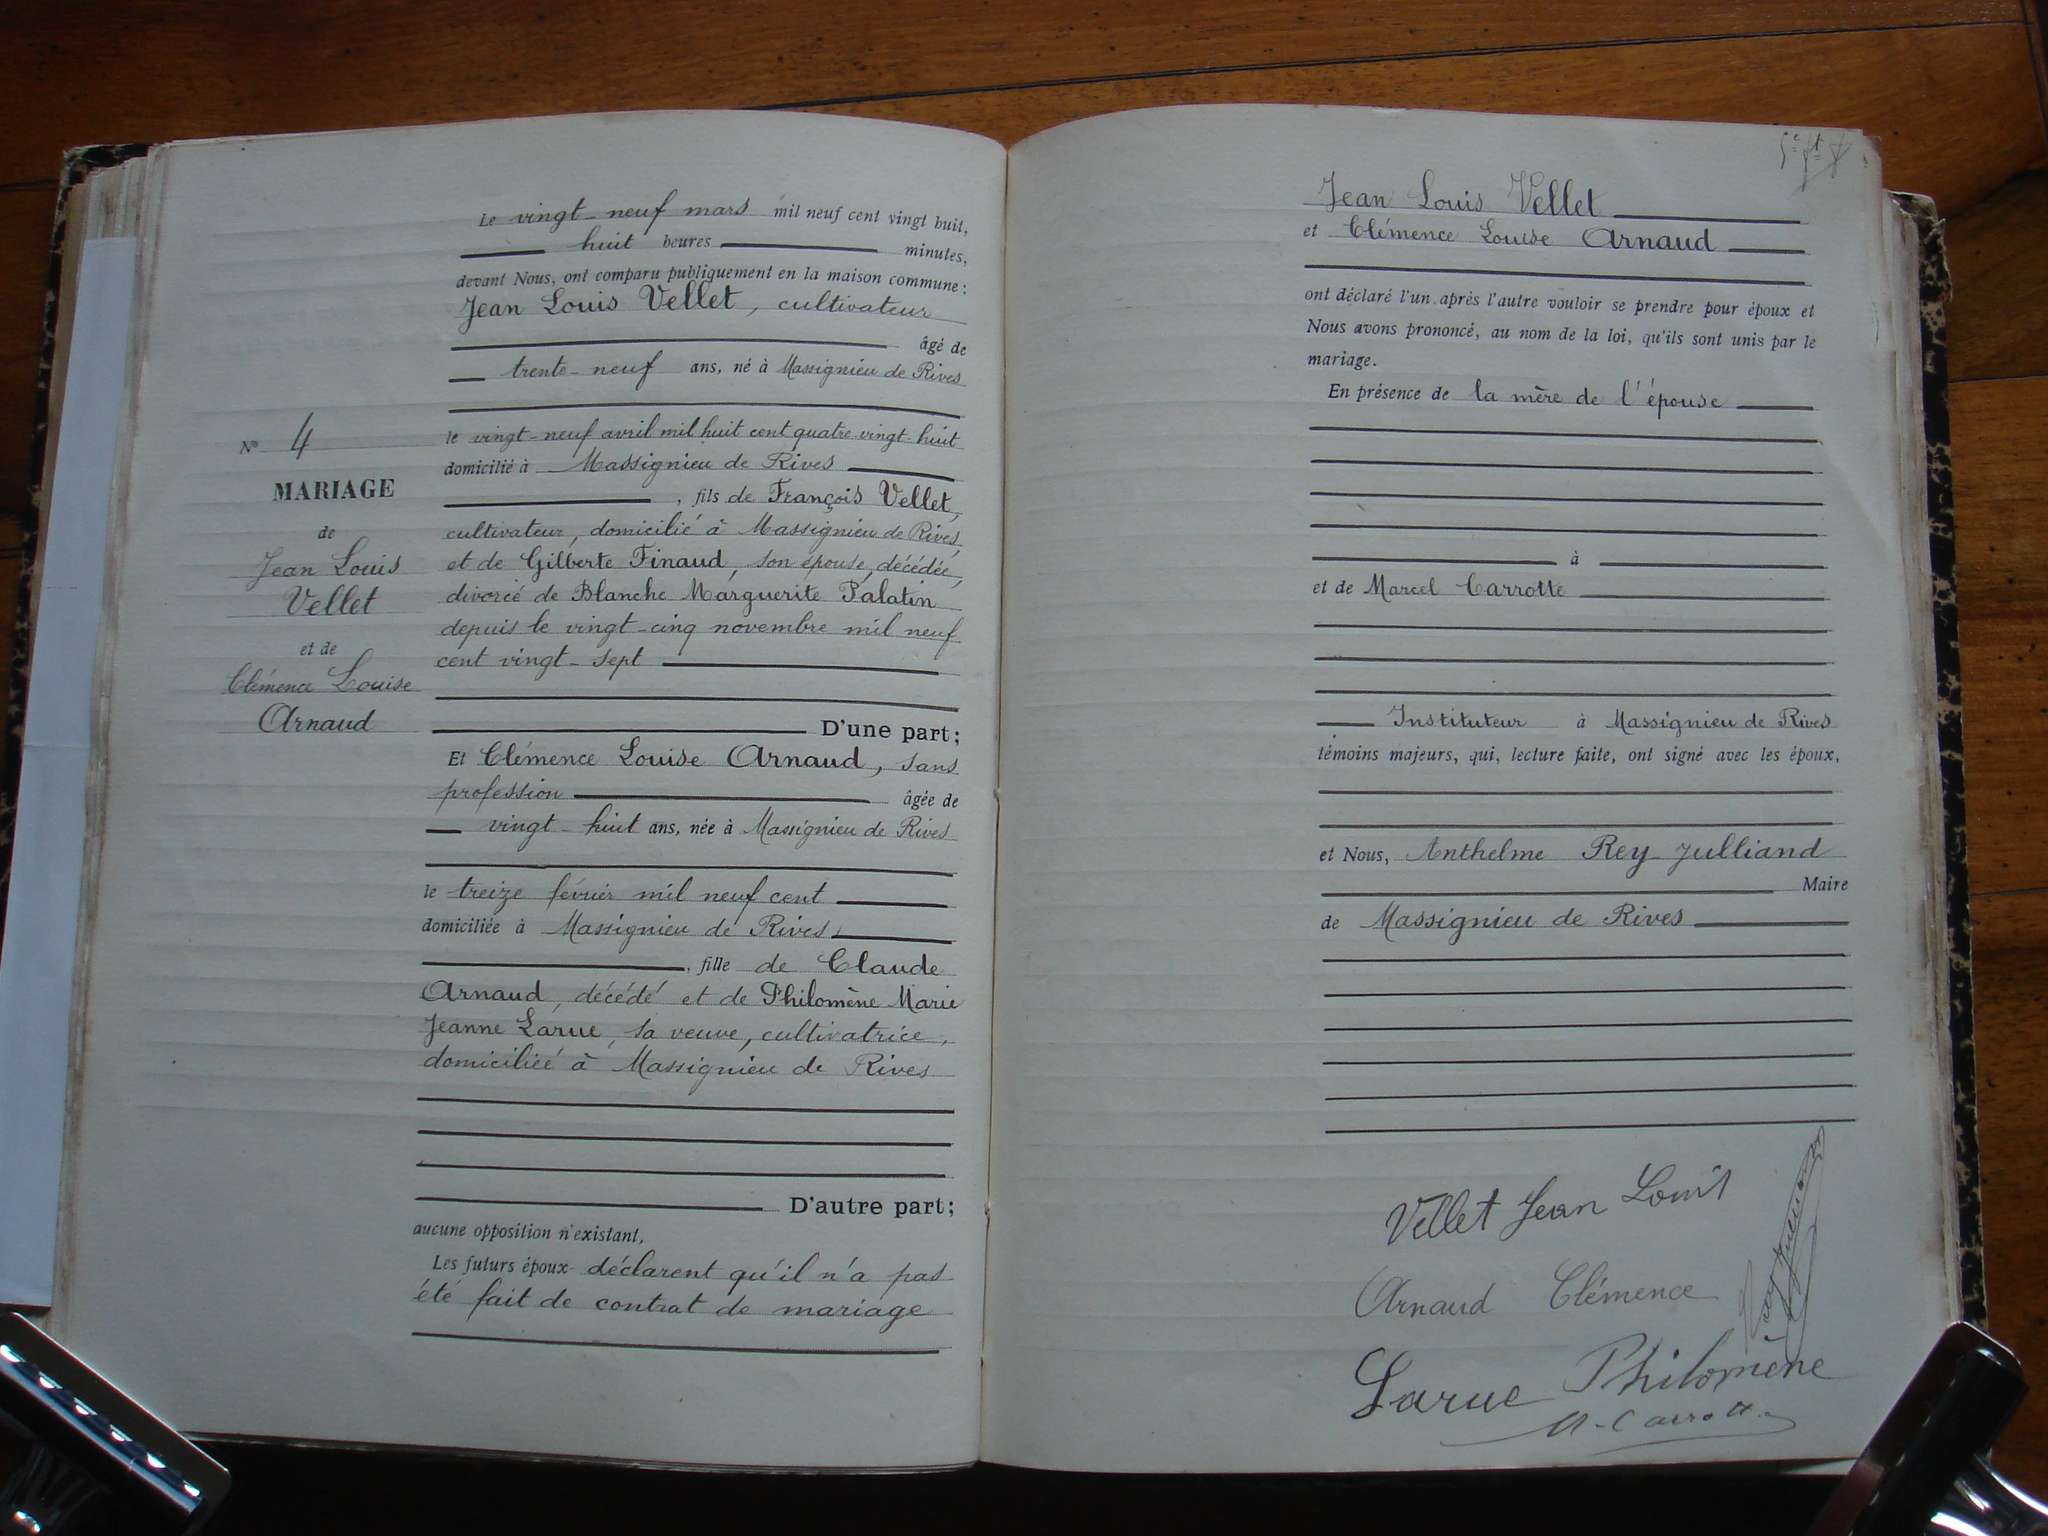 Le vingt-neuf mars mil neuf cent vingt huit,
huit heures minutes,
devant Nous, ont comparu publiquement en la maison commune :
Jean Louis Vellet, cultivateur
âgé de
trente-neuf ans, né à Massignieu de Rives
le vingt-neuf avril mil huit cent quatre vingt-huit
domicilié à Massignieu de Rives
, fils de François Vellet,
cultivateur, domicilié à Massignieu de Rives,
et de Gilberte Finaud, son épouse, décédée,
divorcé de Blanche Marguerite Palatin
depuis le vingt-cinq novembre mil neuf
cent vingt-sept
D'une part ;
N° 4
MARIAGE
de
Jean Louis
Vellet
et de
Clémence Louise
Arnaud
Et Clémence Louise Arnaud, sans
profession âgée de
vingt-huit ans, née à Massignieu de Rives
le treize février mil neuf cent
domiciliée à Massignieu de Rives,
, fille de Claude
Arnaud, décédé et de Philomène Marie
Jeanne Larue, sa veuve, cultivatrice,
domiciliée à Massignieu de Rives
D'autre part ;
aucune opposition n'existant,
Les futurs époux déclarent qu'il n'a pas
été fait de contrat de mariage
Jean Louis Vellet
et Clémence Louise Arnaud
ont déclaré l'un après l'autre vouloir se prendre pour époux et
Nous avons prononcé, au nom de la loi, qu'ils sont unis par le
mariage.
En présence de la mère de l'épouse
à
et de Marcel Carrotte
Instituteur à Massignieu de Rives
témoins majeurs, qui, lecture faite, ont signé avec les époux,
et Nous, Anthelme Rey-Julliand
Maire
de Massignieu de Rives
Vellet Jean Louis
Arnaud Clémence
Larue Philomène
M. Carrotte